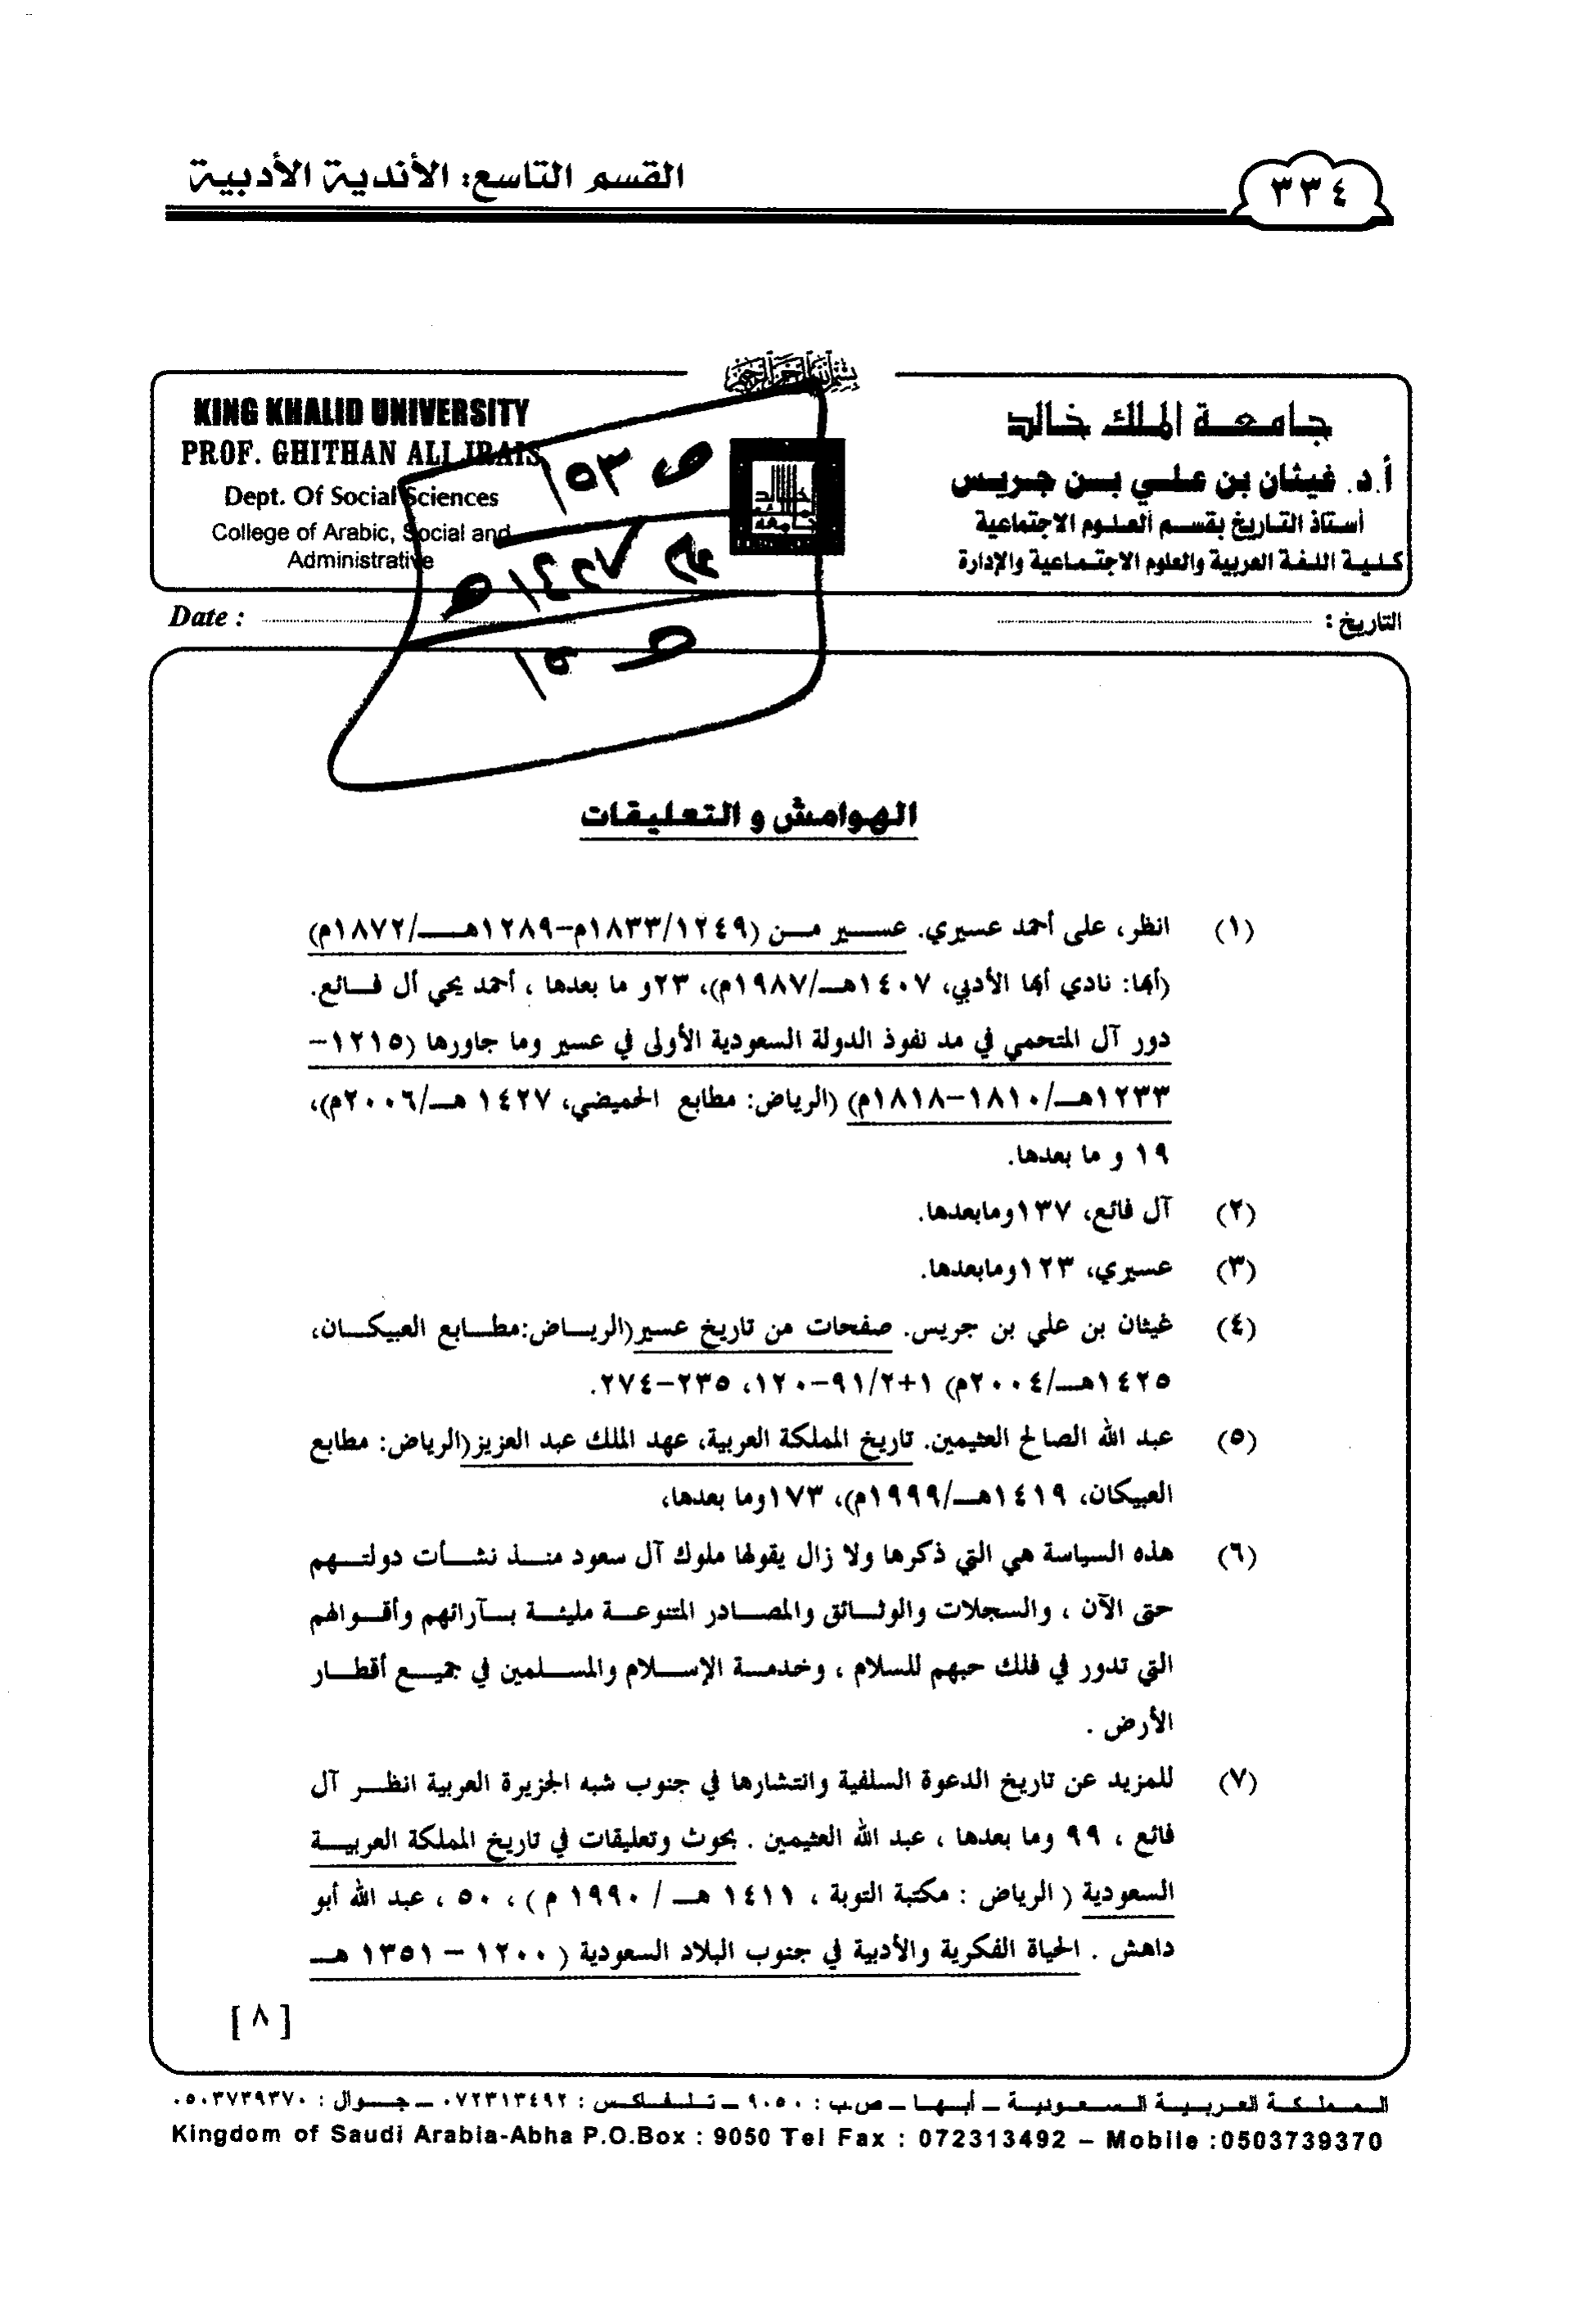 ٣٣٤
القسم التاسع: الأندية الأدبية
بسم الله الرحمن الرحيم
جامعة الملك خالد
أ.د. غيثان بن علي بن جريس
أستاذ التاريخ بقسم العلوم الاجتماعية
كلية اللغة العربية والعلوم الاجتماعية والإدارة
KING KHALID UNIVERSITY
PROF. GHITHAN ALI JRAIS
Dept. Of Social Sciences
College of Arabic, Social and
Administrative
التاريخ :
Date :
الهوامش و التعليقات
(١) انظر، على أحمد عسيري. عسير من (١٨٣٣/١٢٤٩م-١٢٨٩هـ/١٨٧٢م)
(أبها: نادي أبها الأدبي، ١٤٠٧هـ/١٩٨٧م)، ٢٣و ما بعدها ، أحمد يحي أل فائع.
دور آل المتحمي في مد نفوذ الدولة السعودية الأولى في عسير وما جاورها (١٢١٥-
١٢٣٣هـ/١٨١٠-١٨١٨م) (الرياض: مطابع الحميضي، ١٤٢٧ هـ/٢٠٠٦م)،
١٩ و ما بعدها.
(٢) آل فائع، ١٣٧ومابعدها.
(٣) عسيري، ١٢٣ومابعدها.
(٤) غيثان بن علي بن جريس. صفحات من تاريخ عسير(الرياض:مطابع العبيكان،
١٤٢٥هـ/٢٠٠٤م) ١+٩١/٢-١٢٠، ٢٣٥-٢٧٤.
(٥) عبد الله الصالح العثيمين. تاريخ المملكة العربية، عهد الملك عبد العزيز(الرياض: مطابع
العبيكان، ١٤١٩هـ/١٩٩٩م)، ١٧٣وما بعدها،
(٦) هذه السياسة هي التي ذكرها ولا زال يقولها ملوك آل سعود منذ نشأت دولتهم
حتى الآن ، والسجلات والوثائق والمصادر المتنوعة مليئة بآرائهم وأقوالهم
التي تدور في فلك حبهم للسلام ، وخدمة الإسلام والمسلمين في جميع أقطار
الأرض .
(٧) للمزيد عن تاريخ الدعوة السلفية وانتشارها في جنوب شبه الجزيرة العربية انظر آل
فائع ، ٩٩ وما بعدها ، عبد الله العثيمين . بحوث وتعليقات في تاريخ المملكة العربية
السعودية ( الرياض : مكتبة التوبة ، ١٤١١ هـ / ١٩٩٠ م ) ، ٥٠ ، عبد الله أبو
داهش . الحياة الفكرية والأدبية في جنوب البلاد السعودية ( ١٢٠٠ – ١٣٥١ هـ
[ ٨ ]
المملكة العربية السعودية - أبها - ص.ب : ٩٠٥٠ - تلفاكس : ٠٧٢٣١٣٤٩٢ - جوال : ٠٥٠٣٧٣٩٣٧٠
Kingdom of Saudi Arabia-Abha P.O.Box : 9050 Tel Fax : 072313492 – Mobile :0503739370